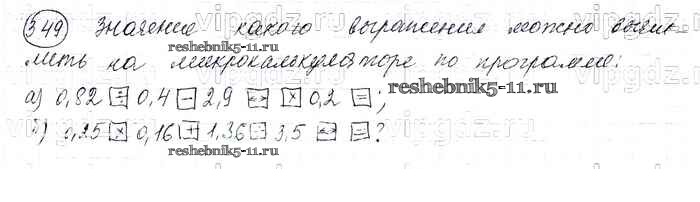 349) Значение какого выражения можно вычис-
лить на микрокалькуляторе по программе:
а) 0,82 ÷ 0,4 − 2,9 ↔ × 0,2 = ;
б) 0,25 × 0,16 + 1,36 ÷ 3,5 ↔ = ?
reshebnik5-11.ru
reshebnik5-11.ru
reshebnik5-11.ru
reshebnik5-11.ru
vipgdz.ru